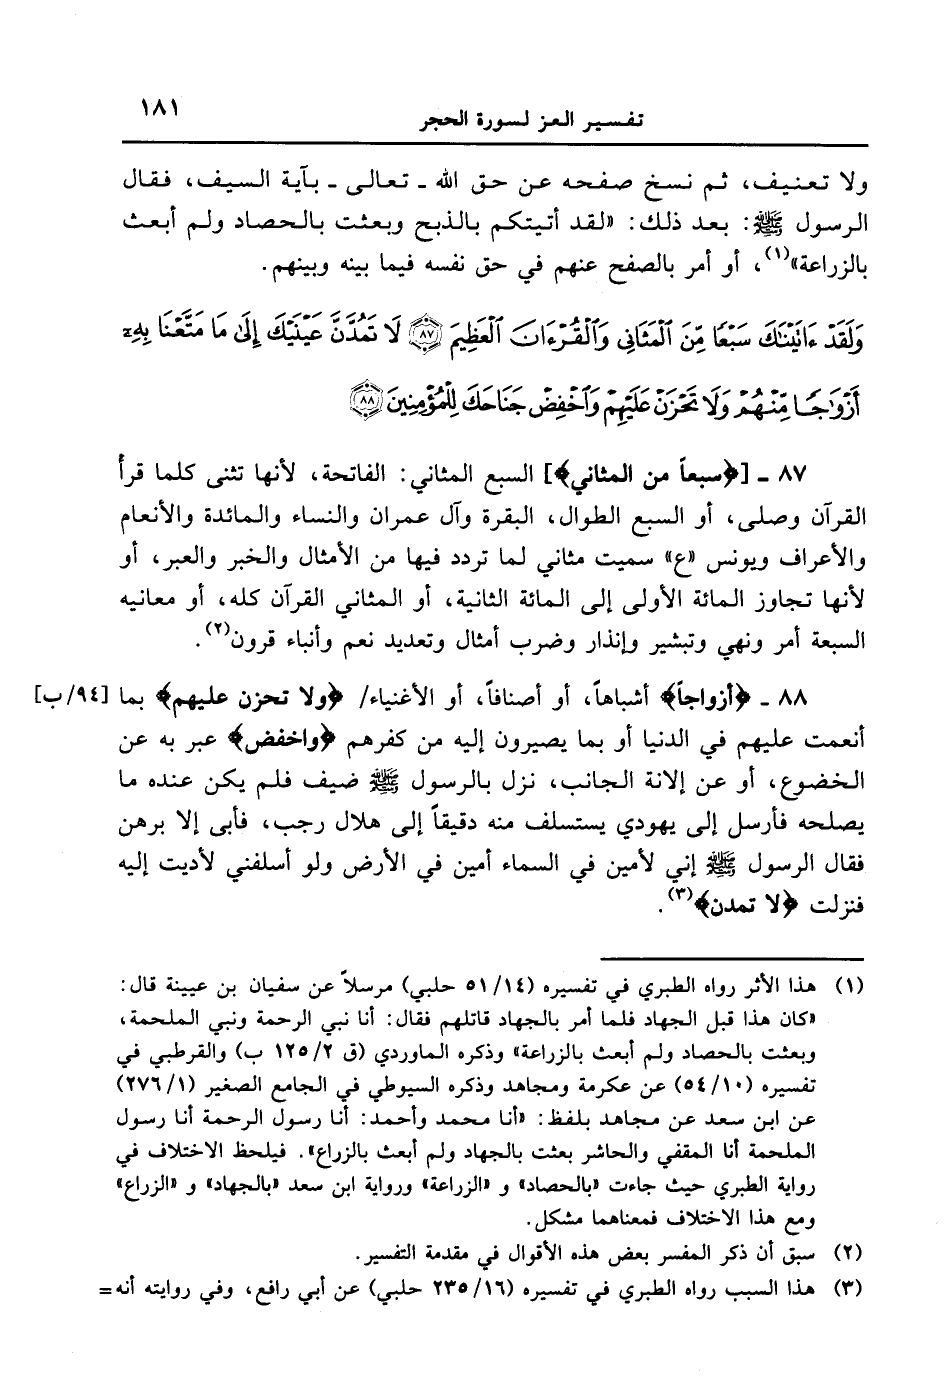 تفسير العز لسورة الحجر ١٨١
ولا تعنيف، ثم نسخ صفحه عن حق الله ـ تعالى ـ بآية السيف، فقال
الرسول ﷺ: بعد ذلك: «لقد أتيتكم بالذبح وبعثت بالحصاد ولم أبعث
بالزراعة»(١)، أو أمر بالصفح عنهم في حق نفسه فيما بينه وبينهم.
وَلَقَدْ ءَاتَيْنَٰكَ سَبْعًا مِّنَ ٱلْمَثَانِى وَٱلْقُرْءَانَ ٱلْعَظِيمَ ﴿٨٧﴾ لَا تَمُدَّنَّ عَيْنَيْكَ إِلَىٰ مَا مَتَّعْنَا بِهِۦٓ
أَزْوَٰجًا مِّنْهُمْ وَلَا تَحْزَنْ عَلَيْهِمْ وَٱخْفِضْ جَنَاحَكَ لِلْمُؤْمِنِينَ ﴿٨٨﴾
٨٧ ـ [﴿سبعاً من المثاني﴾] السبع المثاني: الفاتحة، لأنها تثنى كلما قرأ
القرآن وصلى، أو السبع الطوال، البقرة وآل عمران والنساء والمائدة والأنعام
والأعراف ويونس «ع» سميت مثاني لما تردد فيها من الأمثال والخبر والعبر، أو
لأنها تجاوز المائة الأولى إلى المائة الثانية، أو المثاني القرآن كله، أو معانيه
السبعة أمر ونهي وتبشير وإنذار وضرب أمثال وتعديد نعم وأنباء قرون(٢).
٨٨ ـ ﴿أزواجاً﴾ أشباهاً، أو أصنافاً، أو الأغنياء/ ﴿ولا تحزن عليهم﴾ بما [٩٤/ب]
أنعمت عليهم في الدنيا أو بما يصيرون إليه من كفرهم ﴿واخفض﴾ عبر به عن
الخضوع، أو عن إلانة الجانب، نزل بالرسول ﷺ ضيف فلم يكن عنده ما
يصلحه فأرسل إلى يهودي يستسلف منه دقيقاً إلى هلال رجب، فأبى إلا برهن
فقال الرسول ﷺ إني لأمين في السماء أمين في الأرض ولو أسلفني لأديت إليه
فنزلت ﴿لا تمدن﴾(٣).
(١) هذا الأثر رواه الطبري في تفسيره (٥١/١٤ حلبي) مرسلاً عن سفيان بن عيينة قال:
«كان هذا قبل الجهاد فلما أمر بالجهاد قاتلهم فقال: أنا نبي الرحمة ونبي الملحمة،
وبعثت بالحصاد ولم أبعث بالزراعة» وذكره الماوردي (ق ١٢٥/٢ ب) والقرطبي في
تفسيره (٥٤/١٠) عن عكرمة ومجاهد وذكره السيوطي في الجامع الصغير (٢٧٦/١)
عن ابن سعد عن مجاهد بلفظ: «أنا محمد وأحمد: أنا رسول الرحمة أنا رسول
الملحمة أنا المقفي والحاشر بعثت بالجهاد ولم أبعث بالزراع». فيلحظ الاختلاف في
رواية الطبري حيث جاءت «بالحصاد» و «الزراعة» ورواية ابن سعد «بالجهاد» و «الزراع»
ومع هذا الاختلاف فمعناهما مشكل.
(٢) سبق أن ذكر المفسر بعض هذه الأقوال في مقدمة التفسير.
(٣) هذا السبب رواه الطبري في تفسيره (٢٣٥/١٦ حلبي) عن أبي رافع، وفي روايته أنه=